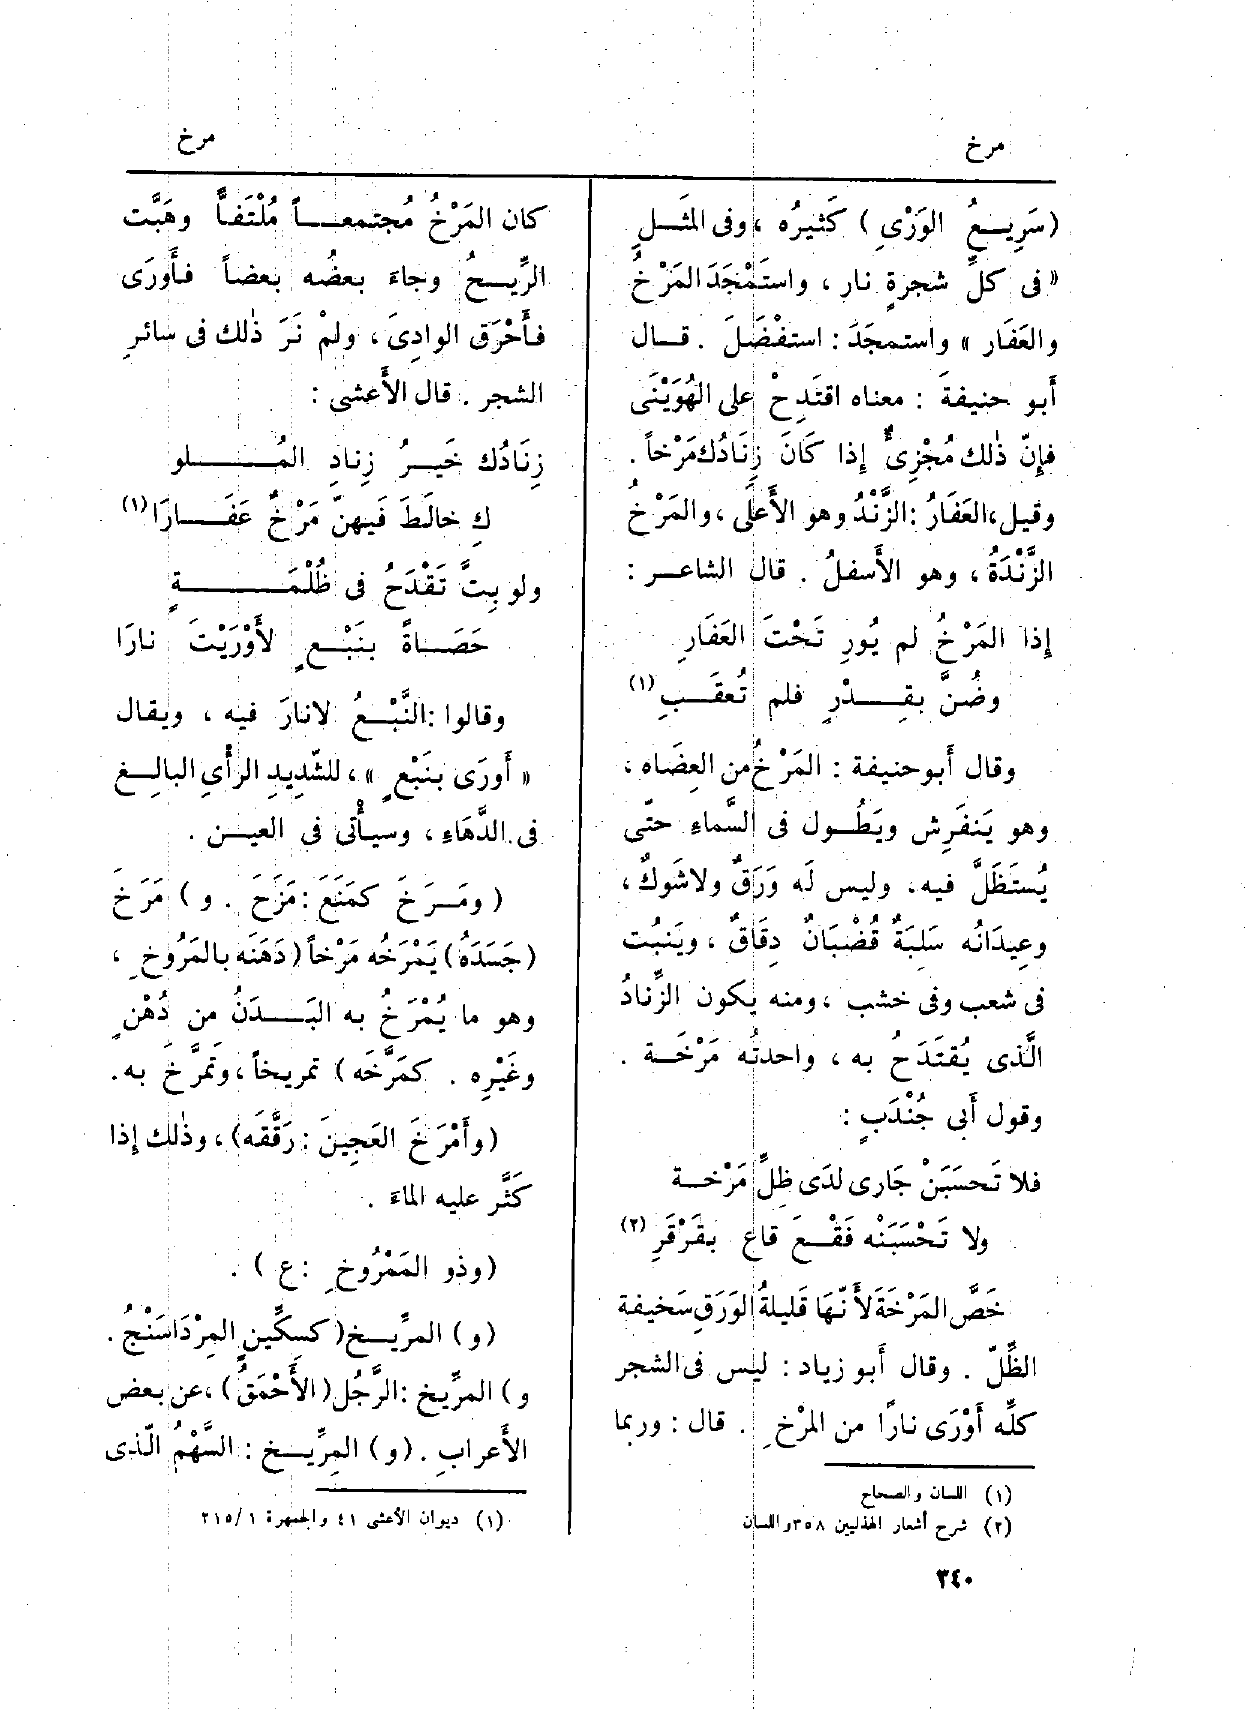 مرخ
مرخ
(سَرِيعُ الوَرْىِ) كَثيرُه ، وفى المثَلِ
«فى كلِّ شجرةٍ نار ، واستَمْجَدَ المَرْخُ
والعَفَار» واستمجَدَ : استفْضَلَ . قال
أَبو حنيفةَ : معناه اقتَدِحْ على الهُوَيْنَى
فإِنّ ذٰلك مُجْزِئٌ إِذا كَانَ زِنَادُك مَرْخاً .
وقيل ، العَفَارُ : الزَّنْدُ وهو الأَعلَى ، والمَرْخُ
الزَّنْدَةُ ، وهو الأَسفلُ . قال الشاعر :
إِذا المَرْخُ لم يُورِ تَحْتَ العَفَارِ
وضُنَّ بقِدْرٍ فلم تُعقَبِ (١)
وقال أَبو حنيفة : المَرْخُ من العِضَاه ،
وهو يَنفَرِش ويَطُول فى السَّماءِ حتّى
يُستَظَلَّ فيه ، وليس لَه وَرَقٌ ولا شوكٌ ،
وعِيدَانُه سَلِبَةٌ قُضْبَانٌ دِقَاقٌ ، ويَنبُت
فى شعب وفى خشب ، ومنه يكون الزِّنادُ
الَّذى يُقتَدَحُ به ، واحدتُه مَرْخَة .
وقول أَبى جُنْدَبٍ :
فلا تَحسَبَنْ جَارى لدَى ظِلِّ مَرْخة
ولا تَحْسَبَنْه فَقْعَ قاع بقَرْقَرِ (٢)
خَصَّ المَرْخَةَ لأَنّهَا قَليلةُ الوَرَقِ سَخيفة
الظِّلّ . وقال أَبو زياد : ليس فى الشجر
كلِّه أَوْرَى نارًا من المرْخِ . قال : وربما
(١) اللسان والصحاح
(٢) شرح أشعار الهذليين ٣٥٨ واللسان
كان المَرْخُ مُجتمعاً مُلْتَفًّا وهَبَّت
الرِّيحُ وجاءَ بعضُه بعضاً فأَورَى
فأَحْرَق الوادِىَ ، ولمْ نَرَ ذٰلك فى سائرِ
الشجر . قال الأَعشى :
زِنَادُك خَيرُ زِنادِ المُلو
كِ خالطَ فيهنّ مَرْخٌ عَفَارَا (١)
ولو بِتَّ تَقْدَحُ فى ظُلْمَةٍ
حَصَاةً بنَبْعٍ لأَوْرَيْتَ نارَا
وقالوا : النَّبْعُ لا نارَ فيه ، ويقال
«أَورَى بنَبْعٍ» ، للشّدِيدِ الرأْىِ البالِغِ
فى الدَّهَاءِ ، وسيأْتى فى العين .
(ومَرَخَ كمَنَعَ : مَزَحَ . و) مَرَخَ
(جَسَدَهُ) يَمْرَخُه مَرْخاً (دَهَنَه بالمَرُوخِ ،
وهو ما يُمْرَخُ به البَدَنُ من دُهْنٍ
وغَيْرِه . كمَرَّخَه) تمريخاً ، وتَمَرَّخَ به .
(وأَمْرَخَ العَجِينَ : رَقَّقَه) ، وذٰلك إِذا
كَثَّر عليه الماءَ .
(وذو المَمْرُوخِ : ع) .
(و) المرِّيخ (كسكِّينٍ المِرْدَاسَنْجُ .
و) المرِّيخ : الرَّجُل (الأَحْمَقُ) ، عن بعض
الأَعرابِ . (و) المِرِّيخ : السَّهْمُ الّذى
(١) ديوان الأعشى ٤١ والجمهرة ٢١٥/١
٣٤٠